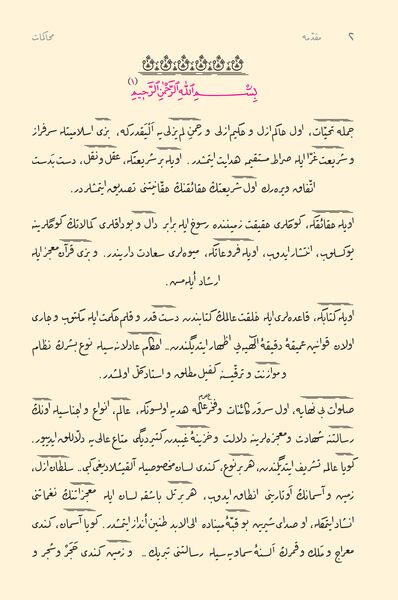 ٢ مقدّمه محاكمات
بِسْــــمِ اللّٰهِ الرَّحْمٰنِ الرَّحِيمِ (١)
جمله تحيّات، اول حاكم ازل و حكيم ازلى و رحمٰنِ لم يزلى يه اَليقدركه، بزى اسلاميتله سرفراز
و شريعت غرّا ايله صراط مستقيمه هدايت ايتمشدر. اويله بر شريعتكه، عقل و نقل، دست بدست
اتّفاق ويره رك اول شريعتك حقائقنك حقّانيتنى تصديق ايتمشلردر.
اويله حقائقكه، كوكلرى حقيقت زميننده رسوخ ايله برابر دال و بوداقلرى كمالاتك كوكلرينه
يوكسلوب، انتشار ايدوب، اويله فروعاتكه، ميوه لرى سعادت دارَيندر. و بزى قرآن معجز ايله
ارشاد أيله مش.
اويله كتابكه، قاعده لرى ايله خلقت عالمك كتابندن دست قدر و قلم حكمت ايله مكتوب و جارى
اولان قوانين عميقۀ دقيقۀ الٰهيه يى اظهار ايتديگندن.. احكام عادلانه سيله نوع بشرك نظام
و موازنت و ترقّيسنه كفيل مطلق و استاد كلّ اولمشدر.
صلوات بى نهايه، اول سرور كائنات و فخر عالمه هديه اولسونكه، عالم، انواع و اجناسيله اونك
رسالتنه شهادت و معجزه لرينه دلالت و خزينۀ غيبدن كتيرديگى متاع عالى يه دلّاللق ايدييور.
گويا عالمى تشريف ايتديگندن، هر بر نوع، كندى لسان مخصوصيله آلقيشلاديغى كبى.. سلطان ازل،
زمين و آسمانك اوتارينى انطاق ايدوب، هر بر تل باشقه لسان ايله معجزاتنك نغماتنى
انشاد ايتمكله، او صداى شيرين بو قبّۀ مينا ده الى الابد طنين أنداز ايتمشدر. گويا آسمان، كندى
معراج و مَلَك و قمرك اَلسنۀ سماويه سيله رسالتنى تبريك.. و زمين كندى حَجَر و شجر و